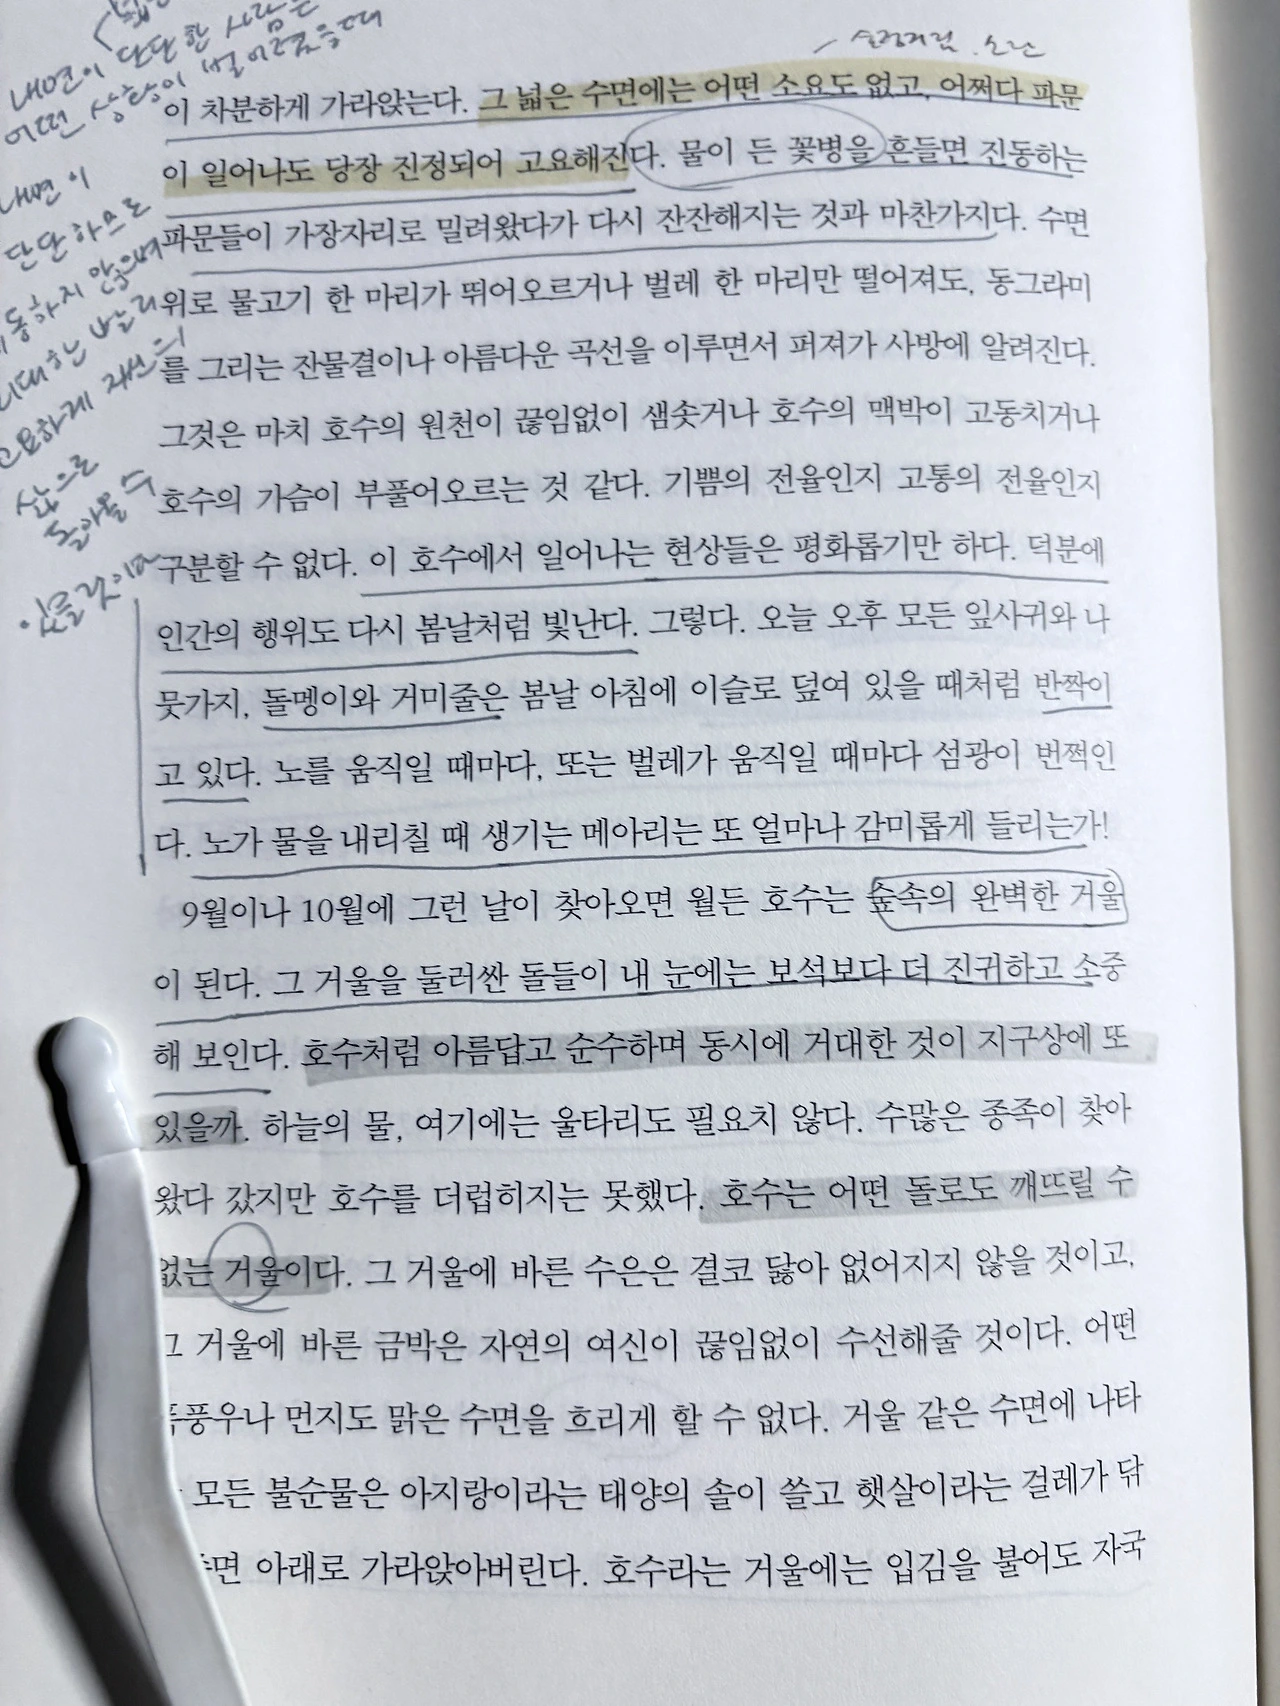 내면이 단단한 사람은
어떤 상황이 벌어졌을때
내면이
단단하므로
않으며
고요하게
삶으로
돌아올 수
있을것이며
수런거림. 소란
이 차분하게 가라앉는다. 그 넓은 수면에는 어떤 소요도 없고, 어쩌다 파문
이 일어나도 당장 진정되어 고요해진다. 물이 든 꽃병을 흔들면 진동하는
파문들이 가장자리로 밀려왔다가 다시 잔잔해지는 것과 마찬가지다. 수면
위로 물고기 한 마리가 뛰어오르거나 벌레 한 마리만 떨어져도, 동그라미
를 그리는 잔물결이나 아름다운 곡선을 이루면서 퍼져가 사방에 알려진다.
그것은 마치 호수의 원천이 끊임없이 샘솟거나 호수의 맥박이 고동치거나
호수의 가슴이 부풀어오르는 것 같다. 기쁨의 전율인지 고통의 전율인지
구분할 수 없다. 이 호수에서 일어나는 현상들은 평화롭기만 하다. 덕분에
인간의 행위도 다시 봄날처럼 빛난다. 그렇다. 오늘 오후 모든 잎사귀와 나
뭇가지, 돌멩이와 거미줄은 봄날 아침에 이슬로 덮여 있을 때처럼 반짝이
고 있다. 노를 움직일 때마다, 또는 벌레가 움직일 때마다 섬광이 번쩍인
다. 노가 물을 내리칠 때 생기는 메아리는 또 얼마나 감미롭게 들리는가!
9월이나 10월에 그런 날이 찾아오면 월든 호수는 숲속의 완벽한 거울
이 된다. 그 거울을 둘러싼 돌들이 내 눈에는 보석보다 더 진귀하고 소중
해 보인다. 호수처럼 아름답고 순수하며 동시에 거대한 것이 지구상에 또
있을까. 하늘의 물, 여기에는 울타리도 필요치 않다. 수많은 종족이 찾아
왔다 갔지만 호수를 더럽히지는 못했다. 호수는 어떤 돌로도 깨뜨릴 수
없는 거울이다. 그 거울에 바른 수은은 결코 닳아 없어지지 않을 것이고,
그 거울에 바른 금박은 자연의 여신이 끊임없이 수선해줄 것이다. 어떤
폭풍우나 먼지도 맑은 수면을 흐리게 할 수 없다. 거울 같은 수면에 나타
모든 불순물은 아지랑이라는 태양의 솔이 쓸고 햇살이라는 걸레가 닦
면 아래로 가라앉아버린다. 호수라는 거울에는 입김을 불어도 자국